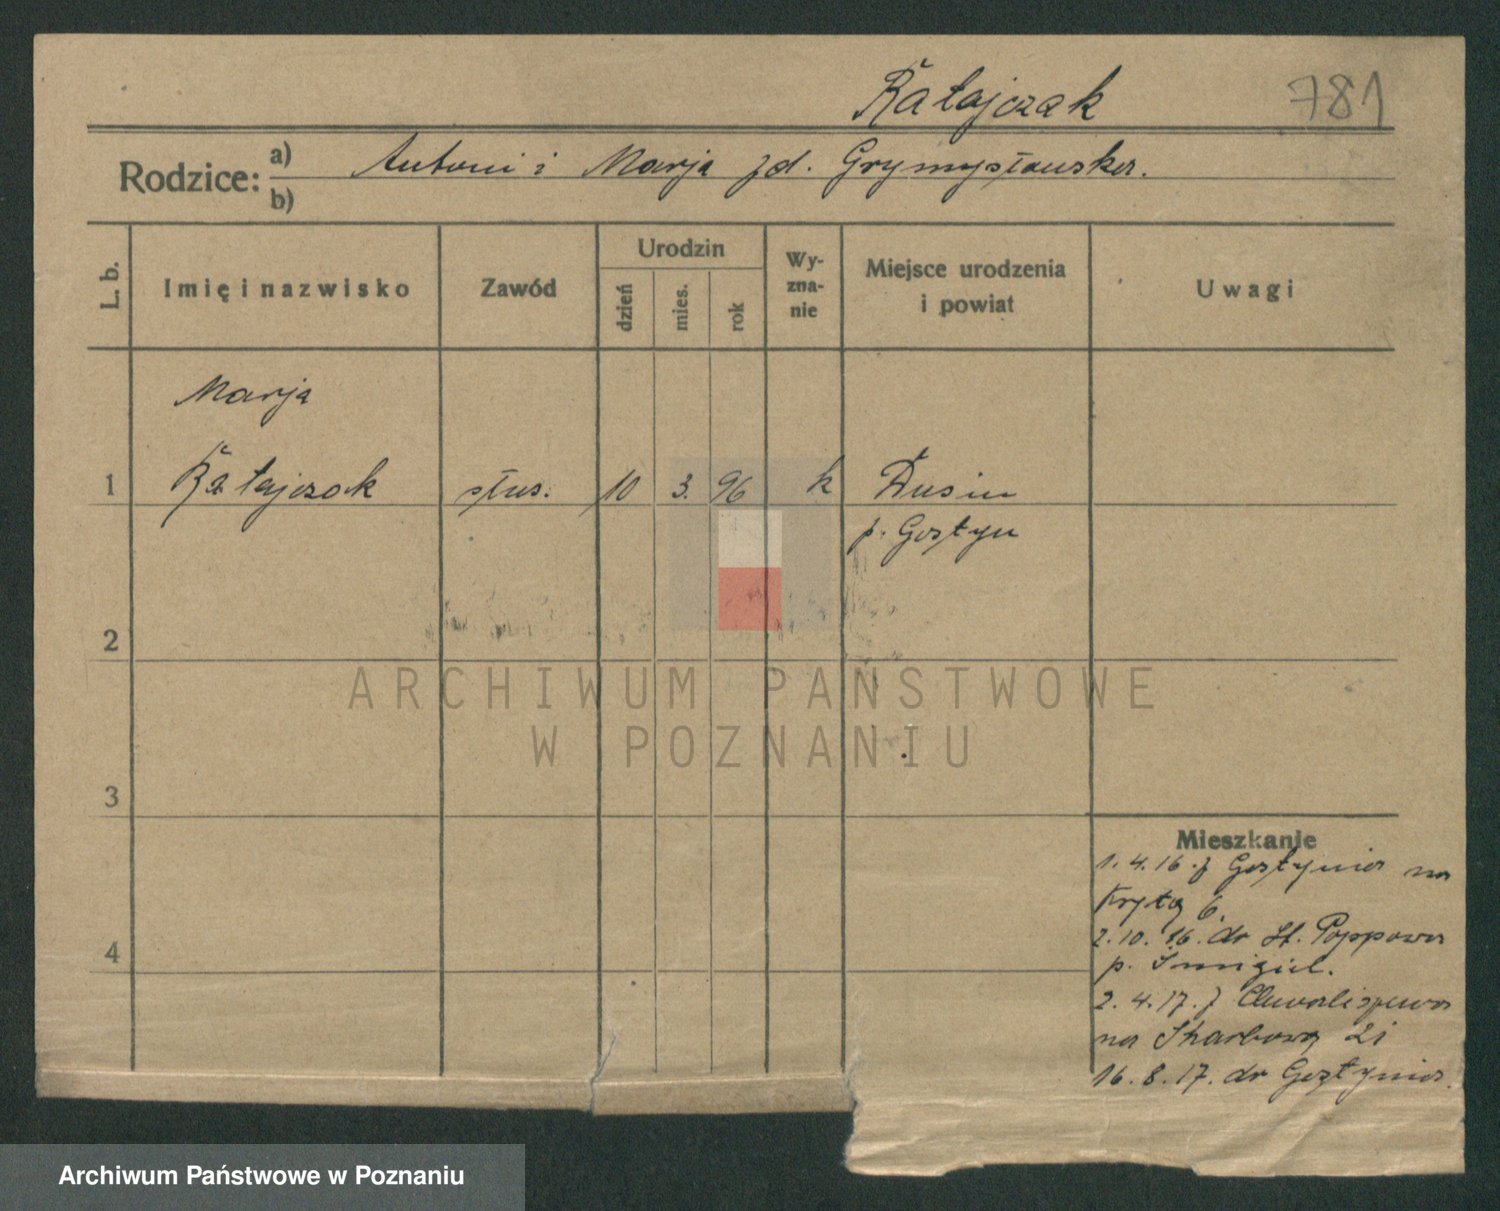 Ratajczak 781
Rodzice: a) Antoni i Marja zd. Grymysławska.
b)
L. b. Imię i nazwisko Zawód Urodzin dzień mies. rok Wy-zna-nie Miejsce urodzenia i powiat Uwagi
Marja
1 Ratajczak służ. 10 3. 96 k Dusin
p. Gostyn
2
3
4
Mieszkanie
1. 4. 16. z Gostynia na
Krytą 6.
2. 10. 16. do St. Poppowa
p. Śmigiel.
2. 4. 17. z Chwaliszewa
na Skarbową 21
16. 8. 17. do Gostynia.
ARCHIWUM PAŃSTWOWE
W POZNANIU
Archiwum Państwowe w Poznaniu